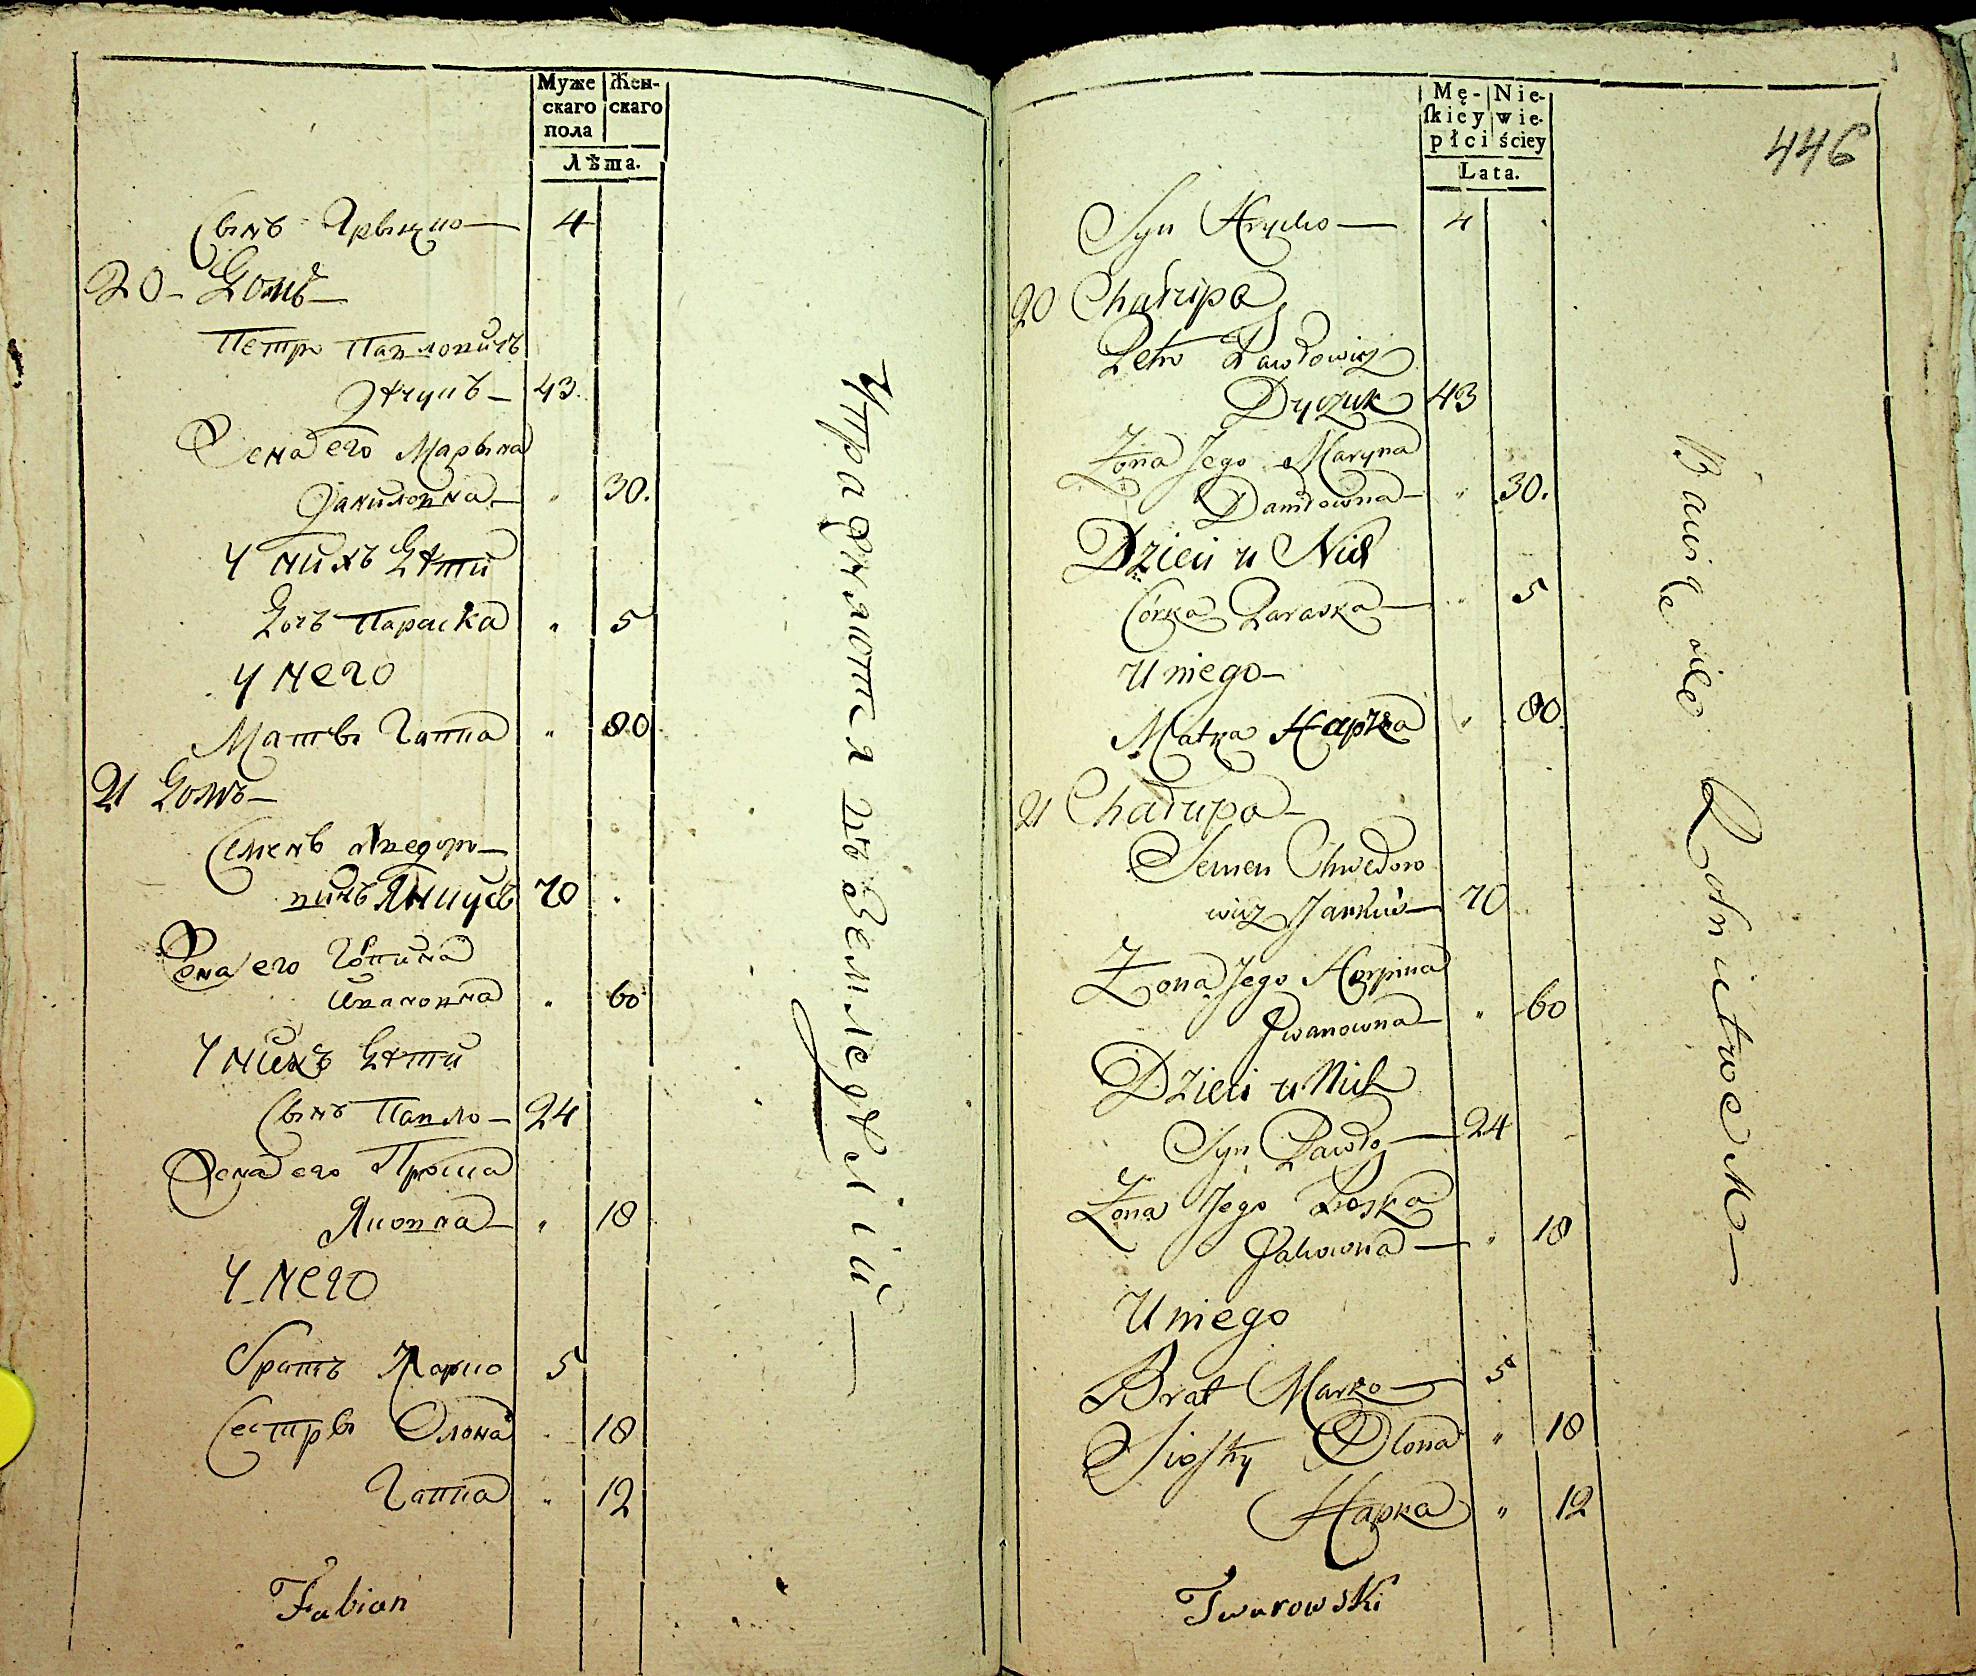 Муже
скаго
пола
Жен-
скаго
Лѣта.
Сынъ Грыцко — 4
20 - Домъ —
Петро Павловичъ
Дячукъ — 43.
Жена его Марына
Даниловна — " 30.
У нихъ Дѣти
Дочь Параска " 5
У него
Мать Гапка " 80
21 Домъ —
Семенъ Хведоро-
вичъ Янкусъ 70
Жена его Горпина
Ивановна " 60
У нихъ Дѣти
Сынъ Павло — 24
Жена его Проска
Яковна — " 18
У него
Братъ Марко 5
Сестры Олона " 18
Гапка " 12
Упражняются въ Земледѣліи —
Fabian
Mę-
ſkiey
płci
Nie-
wie-
ściey
Lata.
446
Syn Hrycko — 4
20 Chałupa
Petro Pawłowicz
Dyczuk 43
Żona Jego Maryna
Daniłowna — " 30.
Dzieci u Nich
Córka Paraska — " 5
U niego —
Matka Hapka " 80
21 Chałupa —
Semen Chwedoro
wicz Jankuś — 70
Żona Jego Horpina
Jwanowna — " 60
Dzieci u Nich
Syn Pawło — 24
Żona Jego Proska
Jakowna — " 18
U niego
Brat Marko — 5
Siostry Olona " 18
Hapka " 12
Bawią się Rolnictwem —
Twarowski